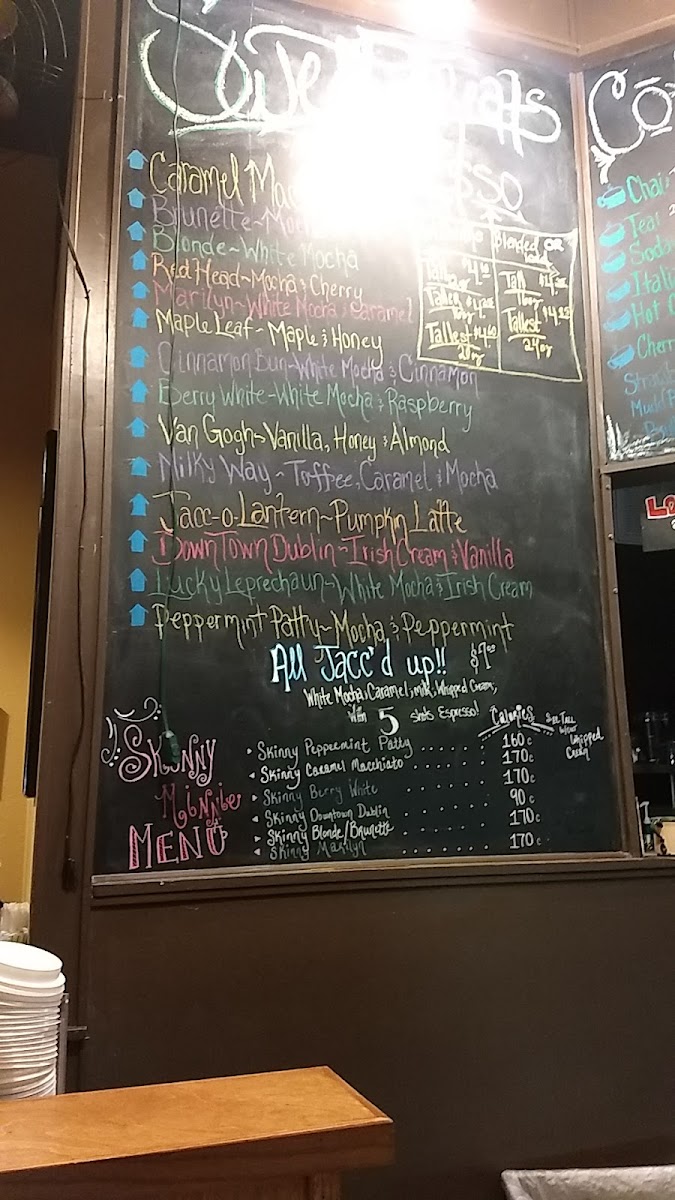 Caramel
Brunette~Mocha
Blonde~White Mocha
Red Head~Mocha & Cherry
Marilyn~White Mocha & Caramel
Maple Leaf~Maple & Honey
Cinnamon Bun~White Mocha & Cinnamon
Berry White~White Mocha & Raspberry
Van Gogh~Vanilla, Honey & Almond
Milky Way~Toffee, Caramel & Mocha
Jacc-o-Lantern~Pumpkin Latte
DownTown Dublin~Irish Cream & Vanilla
Lucky Leprechaun~White Mocha & Irish Cream
Peppermint Patty~Mocha & Peppermint
Blended OR
Tall
Tall
16oz
Taller
Tallest
20oz
Tallest
24oz
All Jacc'd up!!
White Mocha, Caramel, milk, Whipped Cream,
with 5 shots Espresso!
Skinny
Minnie
Menu
Calories
Whipped
Cream
Skinny Peppermint Patty . . . . . . 160c
Skinny Caramel Macchiato . . . . . . 170c
Skinny Berry White . . . . . . . 170c
Skinny Downtown Dublin . . . . . . 90c
Skinny Blonde/Brunette . . . . . . 170c
Skinny Marilyn . . . . . . . 170c
Chai
Teas
Soda
Hot
Cherr